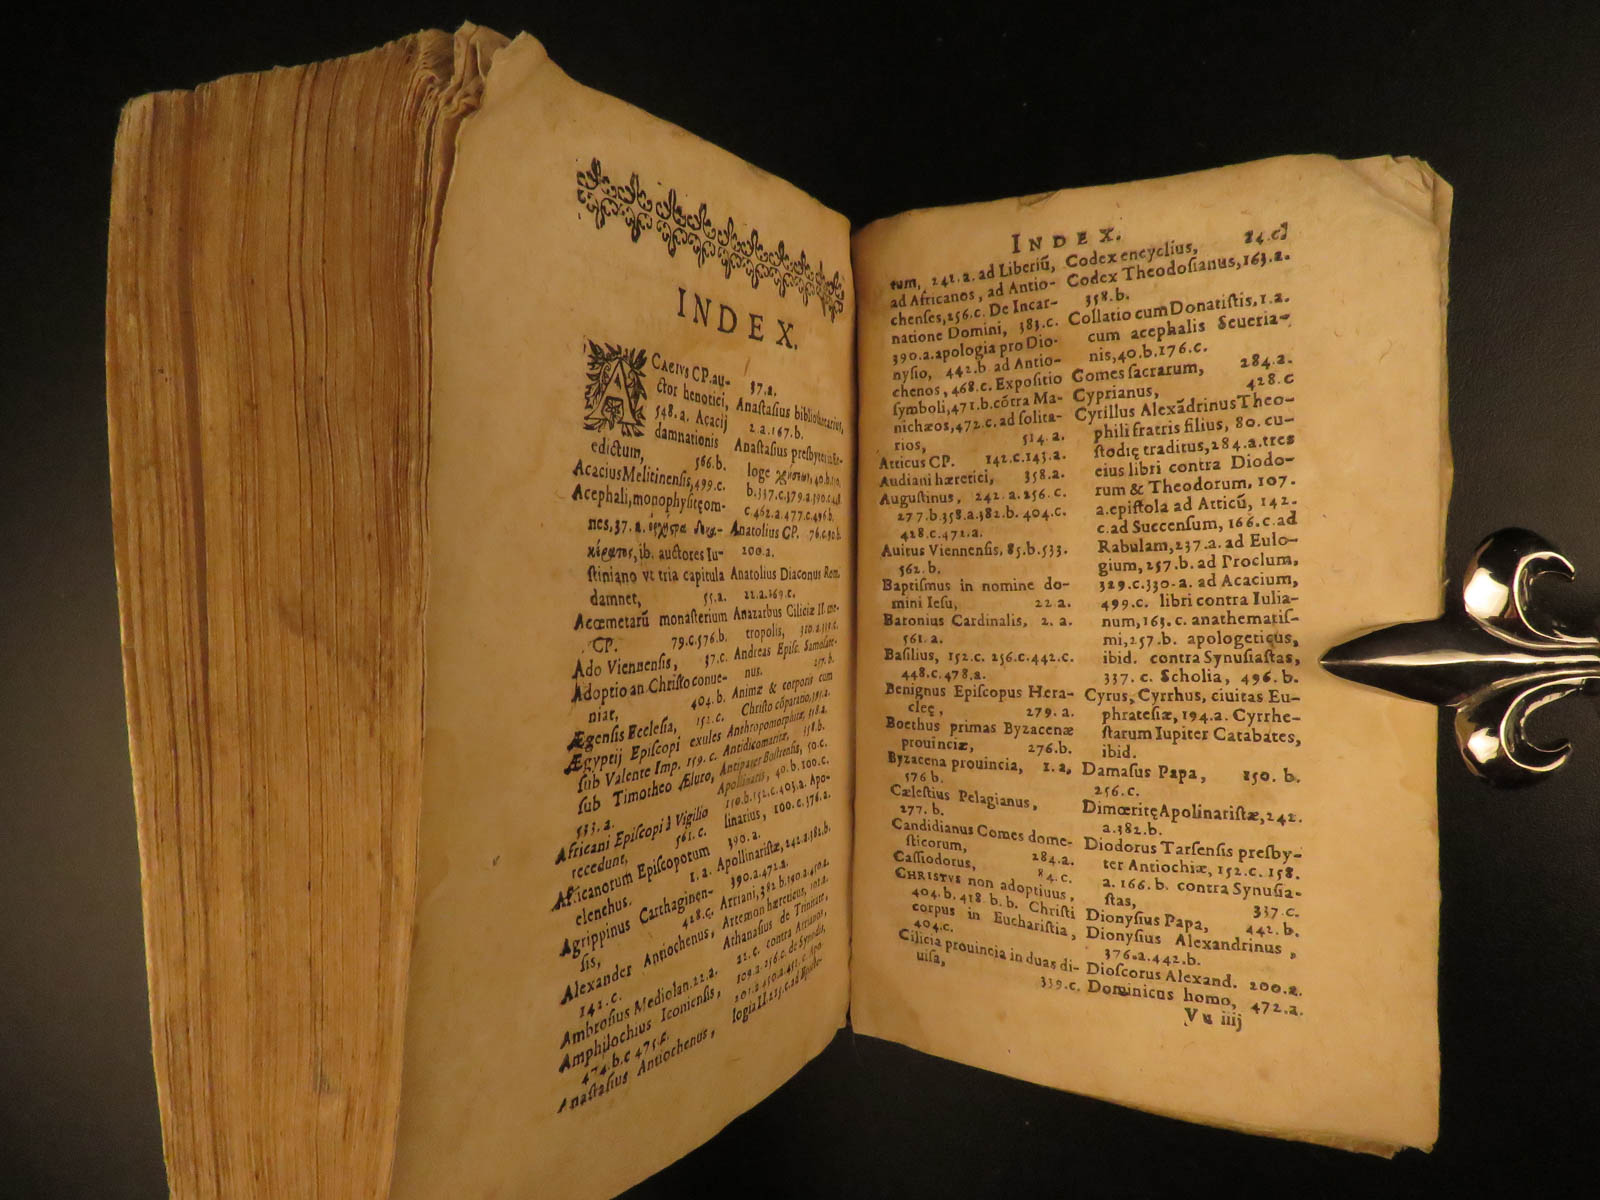 INDEX.
ACACIVS CP. au-
ctor henotici,
548. a. Acacij
damnationis
edictum, 566. b.
Acacius Melitinensis, 499. c.
Acephali, monophysitę om-
nes, 37. a.
ib. auctores Iu-
stiniano vt tria capitula
damnet, 55. a.
Acœmetarū monasterium
CP. 79. c. 576. b.
Ado Viennensis, 37. c.
Adoptio an Christo conue-
niat, 404. b.
Ægensis Ecclesia, 152. c.
Ægyptij Episcopi exules
sub Valente Imp. 159. c.
sub Timotheo Æluro,
533. a.
Africani Episcopi à Vigilio
recedunt, 561. c.
Africanorum Episcopotum
elenchus. 1. a.
Agrippinus Carthaginen-
sis, 428. c.
Alexander Antiochenus,
142. c.
Ambrosius Mediolan. 22. a.
Amphilochius Iconiensis,
474. b. c 475. c.
Anastasius Antiochenus,
37. a.
Anastasius bibliothecarius,
2. a. 167. b.
Anastasius presbyter in
loge
b. 337. c. 379. a. 390. c. 448.
c. 462. a. 477. c. 496. b.
Anatolius CP. 76. c. 90. b.
200. a.
Anatolius Diaconus Rom.
22. a. 169. c.
Anazarbus Ciliciæ II. me-
tropolis,
Andreas Episc. Samosate-
nus. 257. b.
Animæ & corporis cum
Christo cōparatio,
Anthropomorphitæ, 358. a.
Antidicomaritæ, 358. b.
Antipater Bostrensis, 50. c.
Apollinaris, 40. b. 100. c.
150. b. 152. c. 403. a. Apo-
linarius, 100. c. 376. a.
390. a.
Apollinaristæ, 242. a. 382. b.
390. a. 471. a.
Arriani, 382. b. 390. a. 450. a.
Artemon hæreticus, 101. a.
Athanasius de Trinitate,
22. c. contra Arrianos,
109. a. 256. c. de Synodis,
201. a 450. a. 451. c. Apo
logia II. 215. c. ad Episto-
INDEX.
tum, 242. a. ad Liberiū,
ad Africanos, ad Antio-
chenses, 256. c. De Incar-
natione Domini, 383. c.
390. a. apologia pro Dio-
nysio, 442. b ad Antio-
chenos, 468. c. Expositio
symboli, 471. b. cōtra Ma-
nichæos, 472. c. ad solita-
rios, 514. a.
Atticus CP. 142. c. 143. a.
Audiani hæretici, 358. a.
Augustinus, 242. a. 256. c.
277. b. 358. a. 382. b. 404. c.
428. c. 471. a.
Auitus Viennensis, 85. b. 533.
562. b.
Baptismus in nomine do-
mini Iesu, 22. a.
Baronius Cardinalis, 2. a.
561. a.
Basilius, 152. c. 256. c. 442. c.
448. c. 478. a.
Benignus Episcopus Hera-
cleę, 279. a.
Boethus primas Byzacenæ
prouinciæ, 276. b.
Byzacena prouincia, 1. a,
576. b.
Cælestius Pelagianus,
277. b.
Candidianus Comes dome-
sticorum, 284. a.
Cassiodorus, 84. c.
CHRISTVS non adoptiuus,
404. b. 418. b. b. Christi
corpus in Eucharistia,
404. c.
Cilicia prouincia in duas di-
uisa, 339. c.
Codex encyclius, 84. c.
Codex Theodosianus, 163. a.
358. b.
Collatio cum Donatistis, 1. a.
cum acephalis Seueria-
nis, 40. b. 176. c.
Comes sacrarum, 284. a.
Cyprianus, 428. c
Cyrillus Alexādrinus Theo-
phili fratris filius, 80. cu-
stodię traditus, 284. a. tres
eius libri contra Diodo-
rum & Theodorum, 107.
a. epistola ad Atticū, 142.
c. ad Succensum, 166. c. ad
Rabulam, 237. a. ad Eulo-
gium, 257. b. ad Proclum,
329. c. 330. a. ad Acacium,
499. c. libri contra Iulia-
num, 163. c. anathematis-
mi, 257. b. apologeticus,
ibid. contra Synusiastas,
337. c. Scholia, 496. b.
Cyrus, Cyrrhus, ciuitas Eu-
phratesiæ, 194. a. Cyrrhe-
starum Iupiter Catabates,
ibid.
Damasus Papa, 150. b.
256. c.
Dimœritę Apolinaristæ, 242.
a. 382. b.
Diodorus Tarsensis presby-
ter Antiochiæ, 152. c. 158.
a. 166. b. contra Synusia-
stas, 337. c.
Dionysius Papa, 442. b.
Dionysius Alexandrinus,
376. a. 442. b.
Dioscorus Alexand. 200. a.
Dominicus homo, 472. a.
Vu iiij